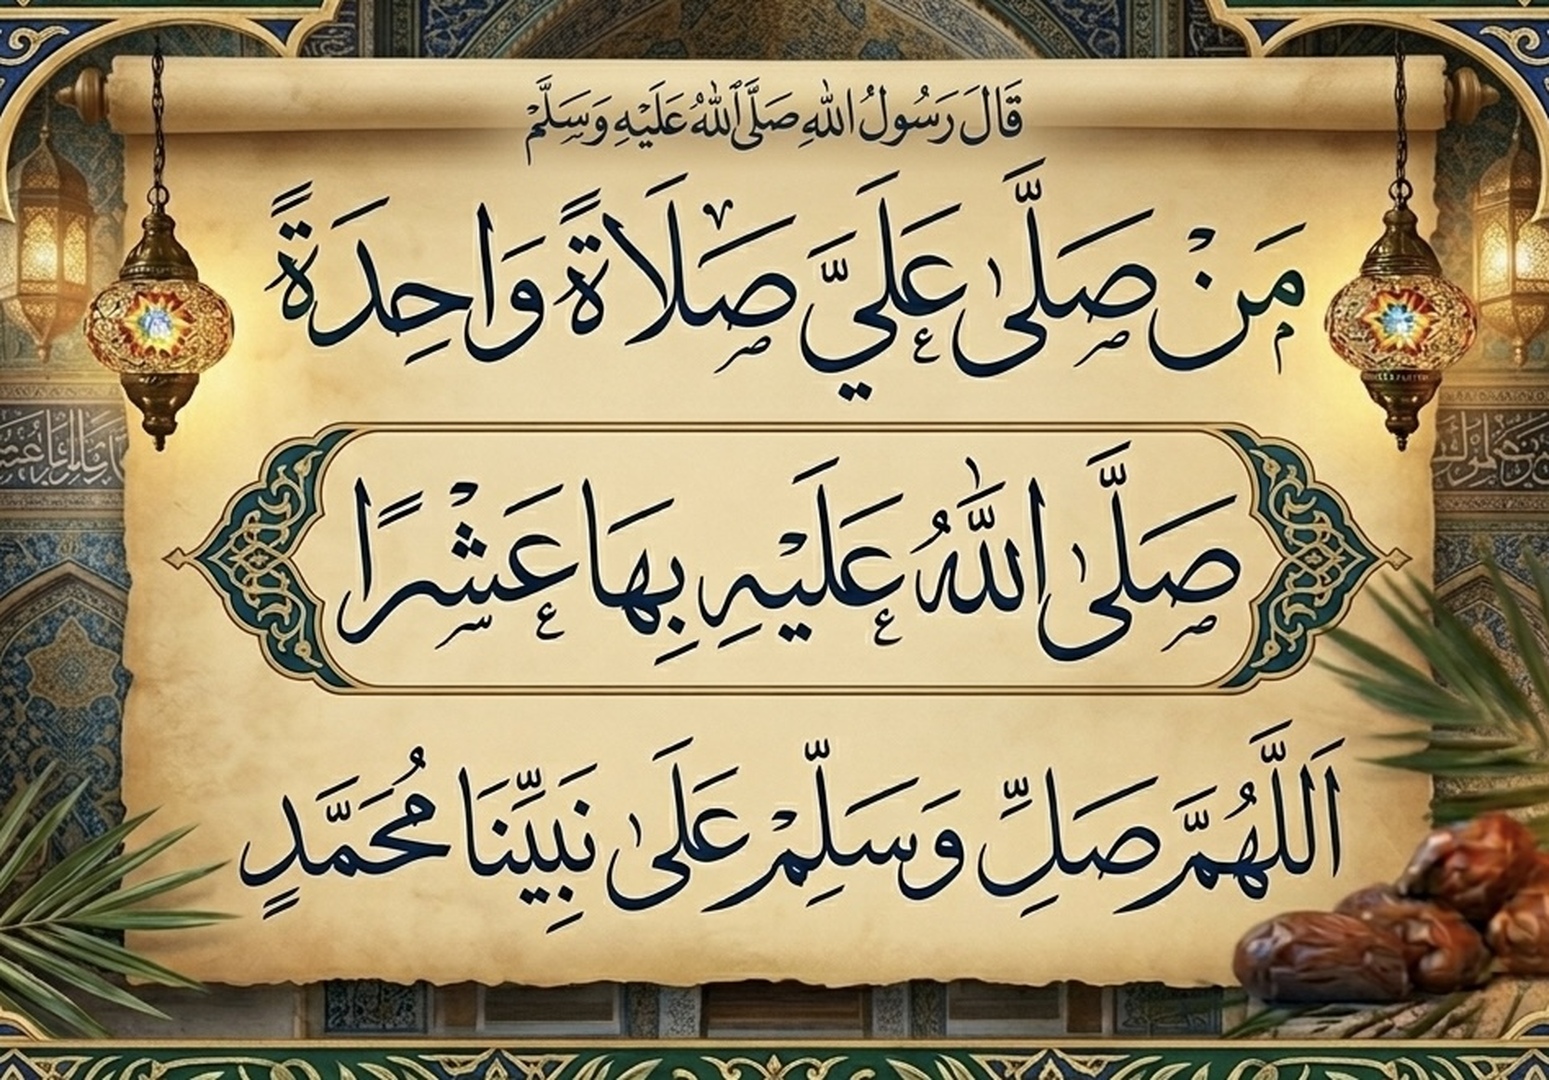 قَالَ رَسُولُ اللهِ صَلَّى ٱللهُ عَلَيْهِ وَسَلَّمَ
مَنْ صَلَّى عَلَيَّ صَلَاةً وَاحِدَةً
صَلَّى اللَّهُ عَلَيْهِ بِهَا عَشْرًا
اَللَّهُمَّ صَلِّ وَسَلِّمْ عَلَى نَبِيِّنَا مُحَمَّدٍ